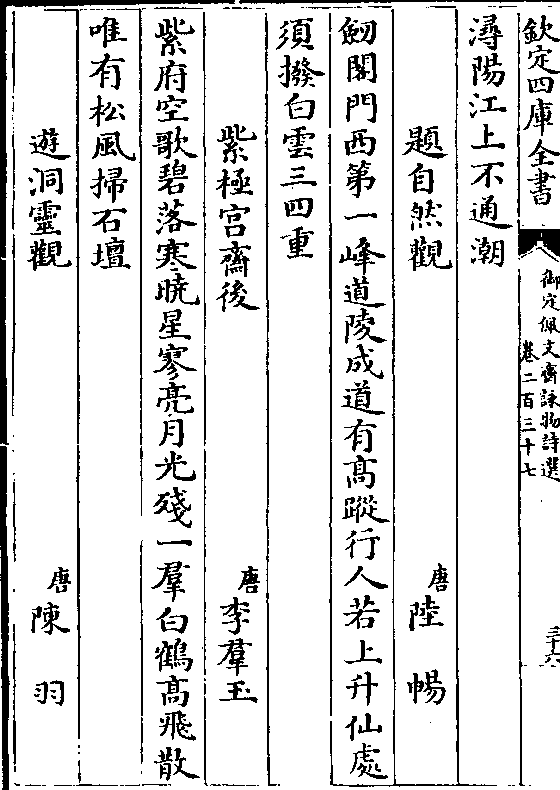 欽定四庫全書
御定佩文齋詠物詩選
卷二百三十七
三十六
潯陽江上不通潮
題自然觀
唐 陸暢
劒閣門西第一峰道陵成道有髙蹤行人若上升仙處
須撥白雲三四重
紫極宫齋後
唐 李羣玉
紫府空歌碧落寒曉星寥亮月光殘一羣白鶴髙飛散
唯有松風掃石壇
遊洞靈觀
唐 陳羽